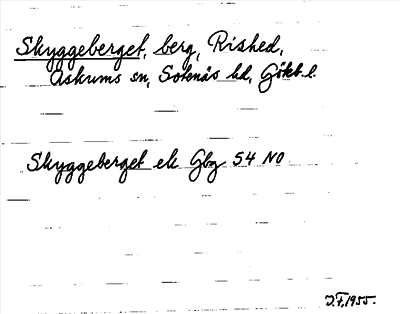 Skyggeberget, berg, Rished,
Askums sn, Sotenäs hd, Göteb. l.
Skyggeberget ek Gbg 54 NO
J.F. 1955.